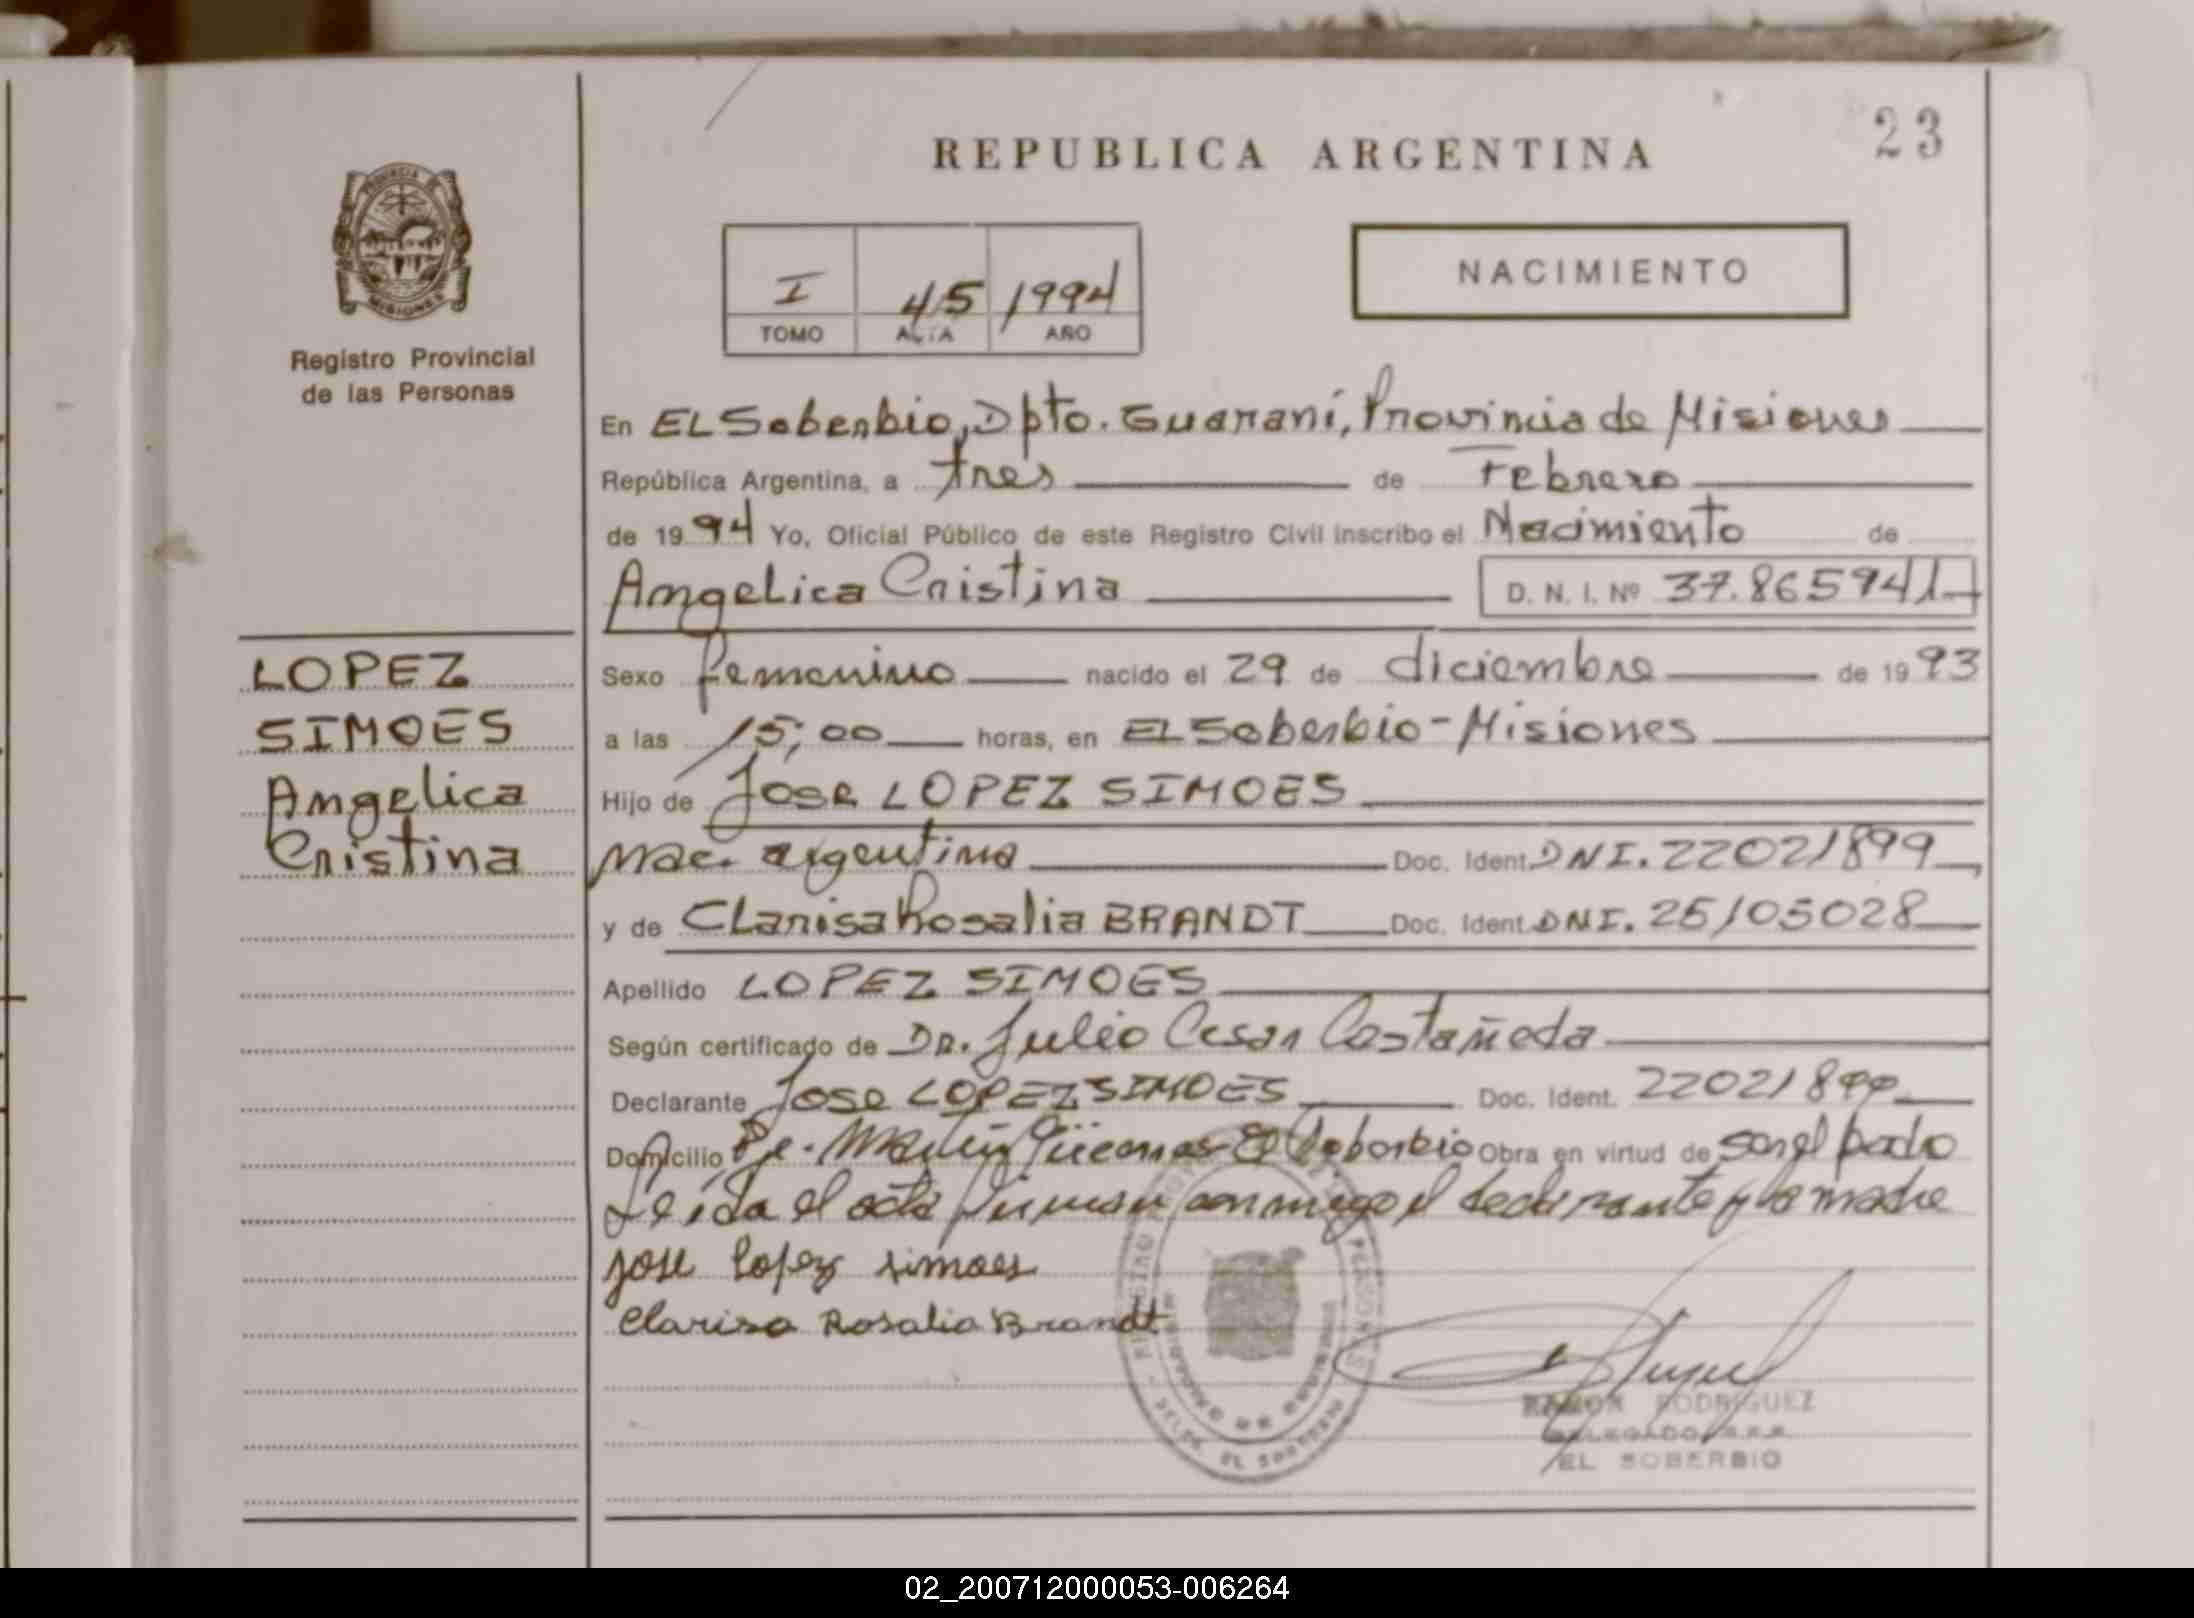 23
REPUBLICA ARGENTINA
PROVINCIA DE
MISIONES
Registro Provincial
de las Personas
NACIMIENTO
I 45 1994
TOMO ACTA AÑO
En EL Soberbio, Dpto. Guaraní, Provincia de Misiones
República Argentina, a tres de Febrero
de 1994 Yo, Oficial Público de este Registro Civil inscribo el Nacimiento de
Angelica Cristina D. N. I. Nº 37.865941
LOPEZ
SIMOES
Angelica
Cristina
Sexo femenino nacido el 29 de diciembre de 1993
a las 15,00 horas, en EL Soberbio - Misiones
Hijo de Jose LOPEZ SIMOES
Nac. argentina Doc. Ident. DNI. 22021899
y de Clarisa Rosalia BRANDT Doc. Ident. DNI. 25105028
Apellido LOPEZ SIMOES
Según certificado de Dr. Julio Cesar Castañeda
Declarante Jose LOPEZ SIMOES Doc. Ident. 22021899
Domicilio Pje. Martín Güemes El Soberbio Obra en virtud de ser el padre
Leída el acta firman conmigo el declarante y la madre
jose lopez simoes
Clarisa Rosalia Brandt
RAMON RODRIGUEZ
DELEGADO R.P.P.
EL SOBERBIO
DELEG. EL SOBERBIO
02_200712000053-006264